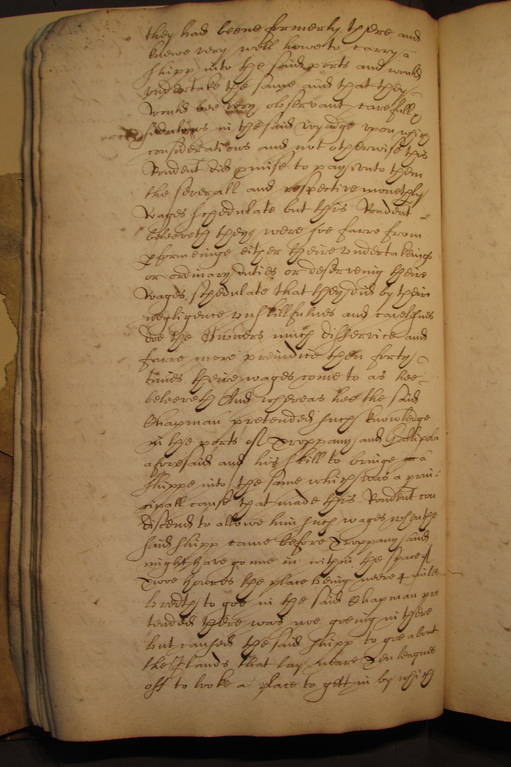 they had beene formerly there and
knewe very well howe to carry a
shipp into the said ports and would
undertake the same and that they
would bee very observant carefull
in the said voyage upon which
considerations and not otherwise this
Rondent did promise to pay unto them
the severall and respective monethly
wages schedulate but this Rondent
beleeveth they were soe farre from
pforminge either theire undertakeings
or ordinary duties or deserveing theire
wages schedulate that they did by their
negligence unskillfulnes and carelesnes
doe the Owners much disservice and
farre more preiudice then forty
times theire wages come to as hee
beleeveth And whereas hee the said
Chapman pretended such knowledge
in the ports of and
aforesaid and his skill to bringe a
shippe into the same which was a prin
cipall cause that made this Rondent con
discend to allowe him such wages when the
said shipp came before and
might have gonne in within the space of
howres the place being miles
bredth to goe in the said Chapman pre
tended there was noe goeing in there
but caused the said shipp to goe about
the Islands that lay neare Ten leagues
off to looke a place to gett in by which